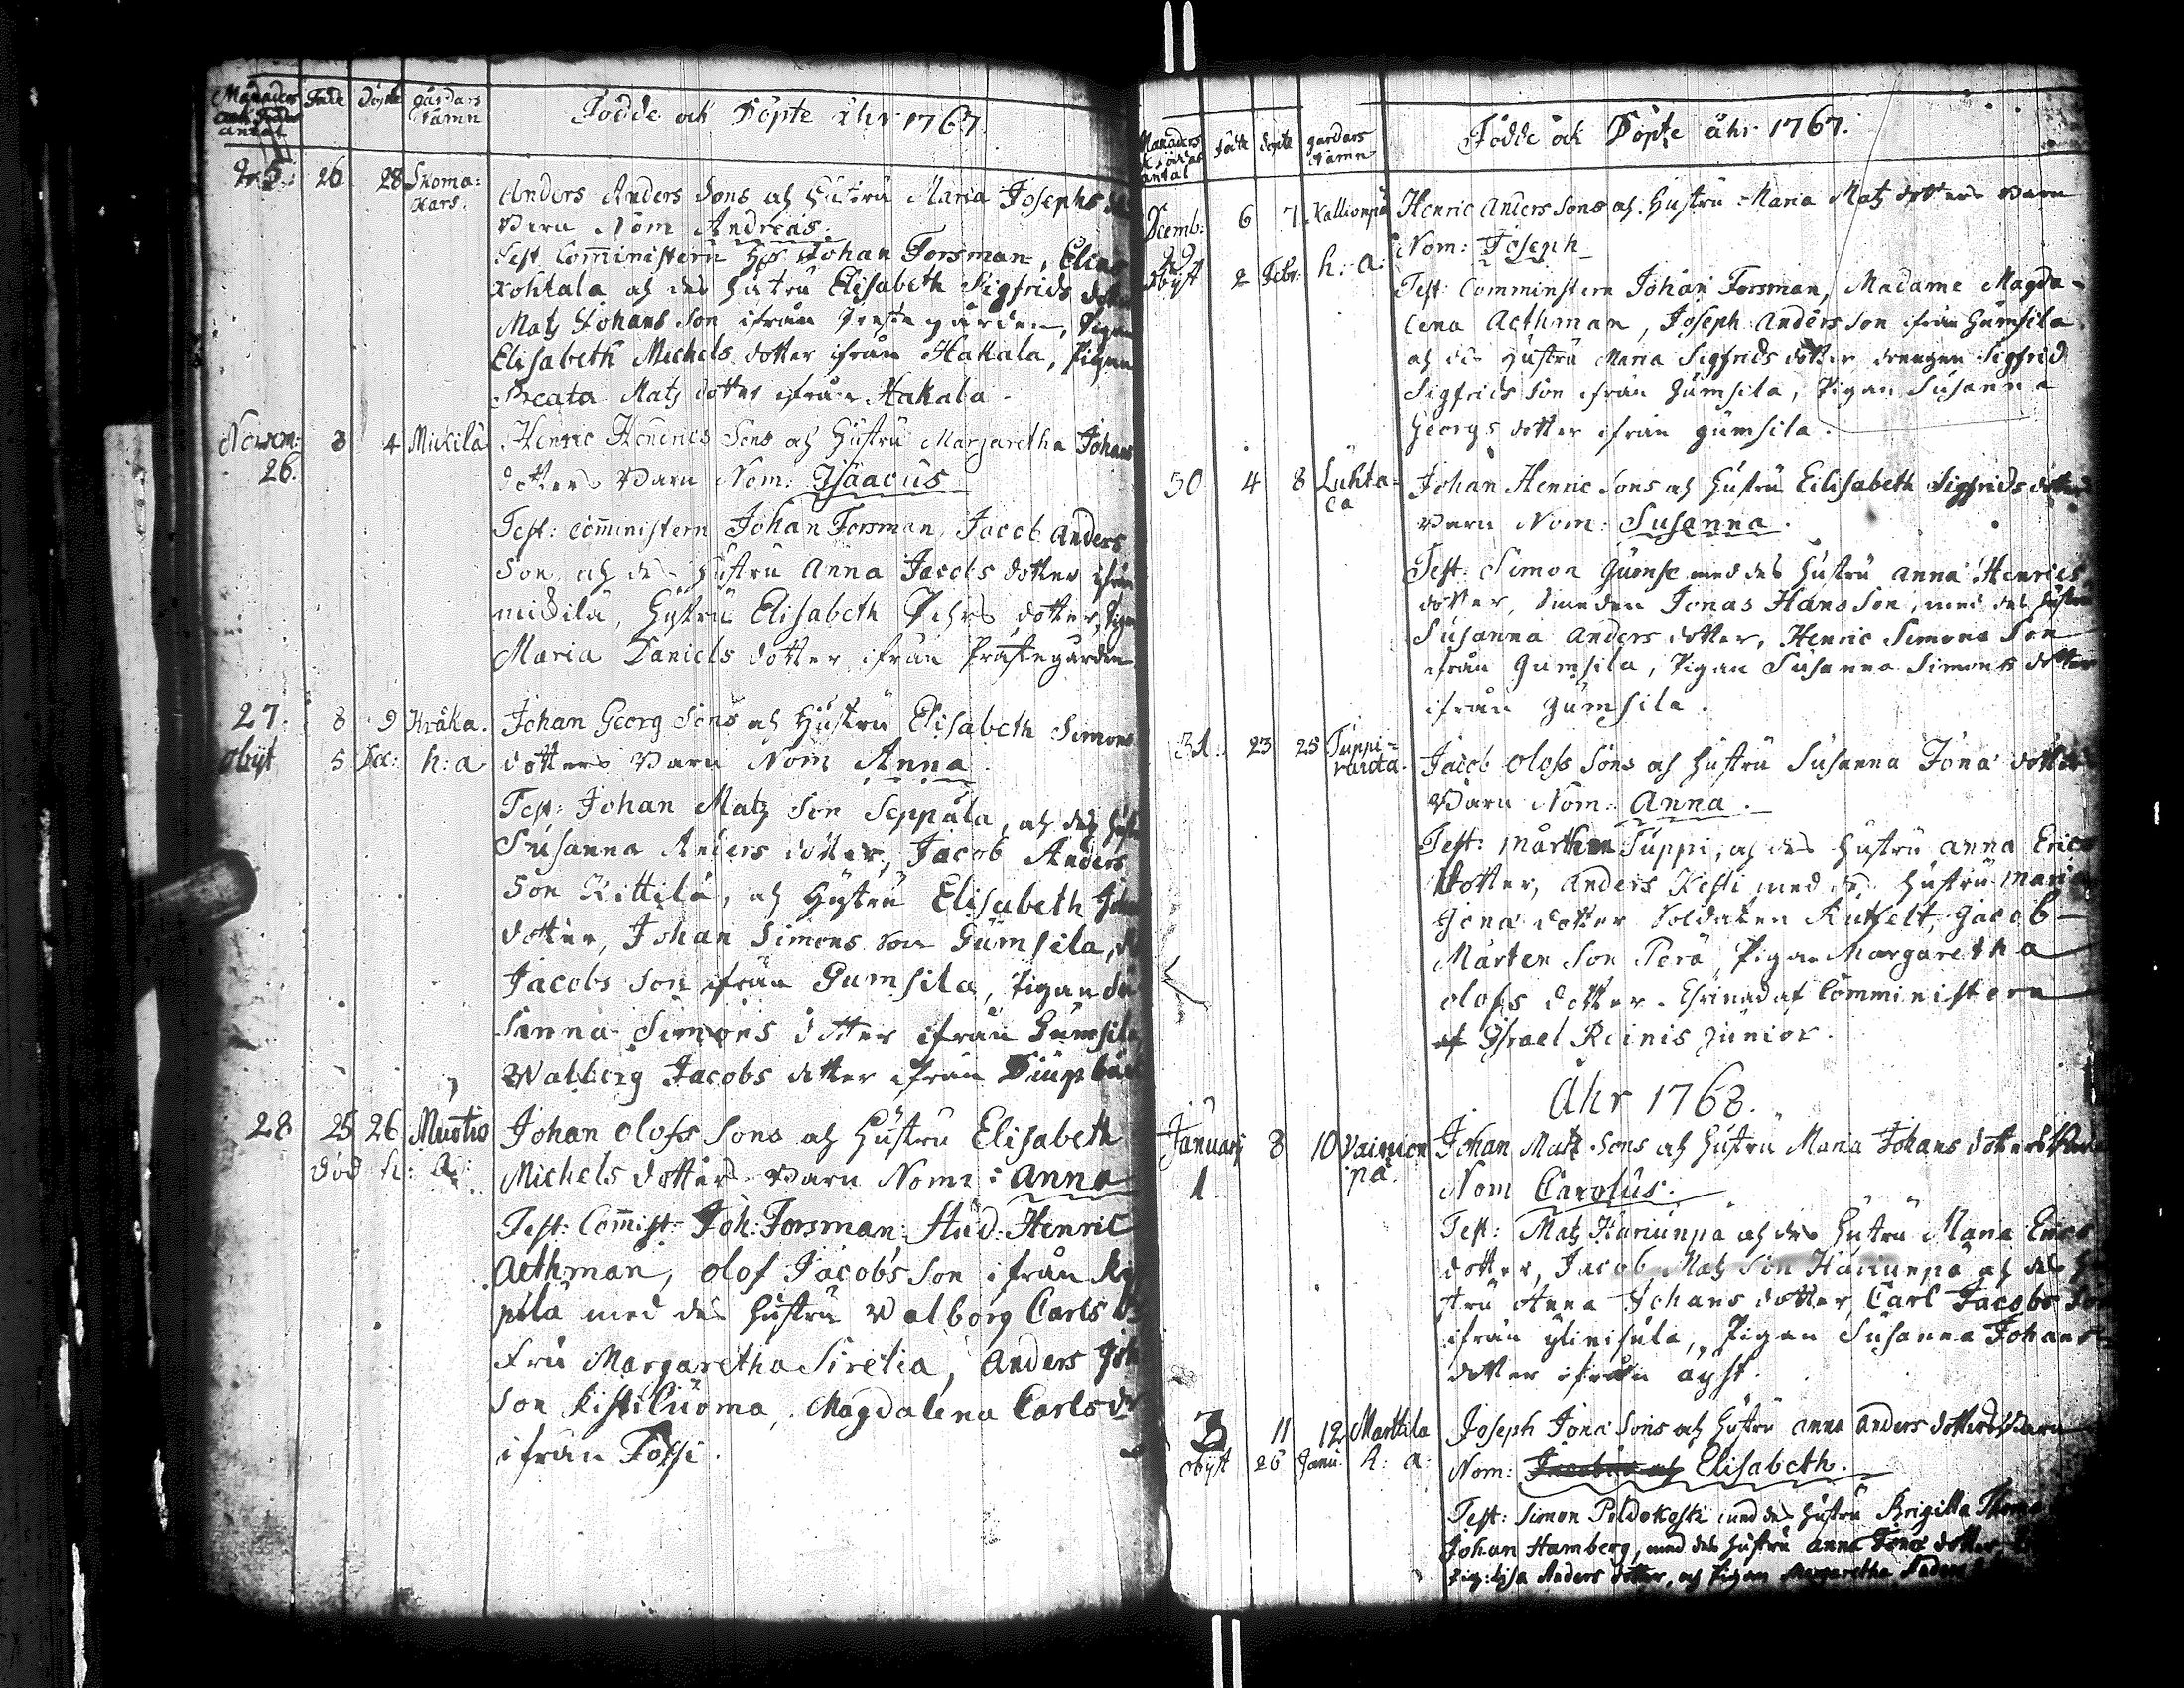 Månader och Födde antal Född Döpte gårdars namn Födde och Döpte åhr 1767.
25. 26 28 Skoma= Kars. Anders Anders Sons och Hustru Maria Josephs
Barn Nom Andreas.
Test Comministern Johan Forsman, Elias
Kohtala och des Hustru Elisabeth Sigfrids dotter
Matz Johans Son ifrån Prestegården, Pigan
Elisabeth Michels dotter ifrån Hakala, Pigan
Beata Matz dotter ifrån Hakala.
Novem: 26. 3 4 Mickilä Henric Henrics Sons och Hustru Margaretha Johans
dotters Barn Nom: Isaacus
Test: Comministern Johan Forsman, Jacob Anders
Son och des Hustru Anna Jacobs dotter ifrån
Mickilä, Hustru Elisabeth Pehrs dotter, Pigan
Maria Daniels dotter ifrån Prästegården
27. 8 9 Kråka. Johan Georg Sons och Hustru Elisabeth Simons
obijt 5 h: a dotters Barn Nom Anna.
Test: Johan Matz Son Seppälä, och des
Susanna Anders dotter, Jacob Anders
Son Kittilä, och Hustru Elisabeth
dotter, Johan Simons Son Gumsila,
Jacobs Son ifrån Gumsila, Pigan Su
sanna Simons dotter ifrån Gumsila
Walborg Jacobs dotter ifrån
28 25 26 Muotio Johan Olofs Sons och Hustru Elisabeth
död h: a: Michels dotters Barn Nom: Anna
Test: Commist: Joh: Forsman, Stud: Henric
Aethman, Olof Jacobs Son ifrån
pilä med des Hustru Walborg Carls
Fru Margaretha Sirelia, Anders
Son Kistiluoma, Magdalena Carls
ifrån Fossi.
Månaders antal Födde döpte gårdars Namn Födde och Döpte åhr 1767.
Decemb: 29 6 7 Kallionpä Henric Anders Sons och Hustru Maria Matz dotters Barn
obijt 2 Febr: h: a: Nom: Joseph
Test: Comministern Johan Forsman, Madame Magda-
lena Aethman, Joseph Anders Son ifrån Gumsila
och des Hustru Maria Sigfrids dotter drengen Sigfrid
Sigfrids Son ifrån Gumsila, Pigan Susanna
Georgs dotter ifrån Gumsila.
30 4 8 Luhta= la Johan Henric Sons och Hustru Elisabeth Sigfrids dotters
Barn Nom: Susanna.
Test: Simon Gumse med des Hustru Anna Henrics
dotter, Smeden Jonas Hans Son, med des Hustru
Susanna Anders dotter, Henric Simons Son
ifrån Gumsila, Pigan Susanna Simons dotter
ifrån Gumsila.
31. 23 25 Tuppi= Jacob Olofs Sons och Hustru Susanna Jona dotters
Barn Nom: Anna.
Test: Mårthen Tuppi, och des Hustru Anna Erics
dotter, Anders Kesti med des Hustru Maria
Jona dotter Soldaten Jacob
Mårten Son Perä, Pigan Margaretha
Olofs dotter. af Comministern
Israel Reinis Junior.
Åhr 1768.
Januarij 1. 8 10 Vainion pä. Johan Matz Sons och Hustru Maria Johans dotters Barn
Nom Carolus.
Test: Matz Hariunpä och des Hustru Maria Erics
dotter, Jacob Matz Son Hariunpä och des Hu
stru Anna Johans dotter, Carl Jacobs
ifrån Ylinisula, Pigan Susanna Johans
dotter ifrån
11 12 Marttila Joseph Jona Sons och Hustru Anna Anders dotters Barn
obijt 26 Janu: h: a: Nom: Jacobus och Elisabeth.
Test: Simon Poldokoski med des Hustru Brigitta
Johan Hamberg, med des Hustru Anna Jona dotter
Lisa Anders dotter, och Pigan Margaretha